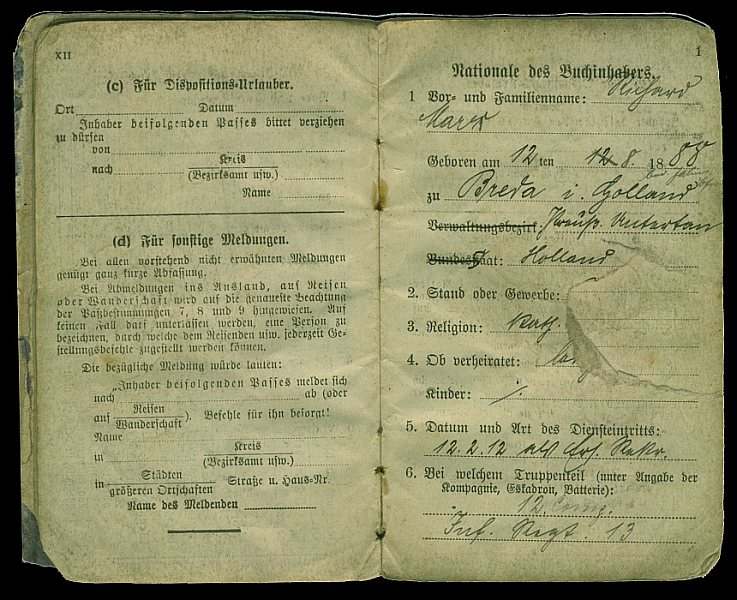 XII
(c) Für Dispositions-Urlauber.
Ort Datum
Inhaber beifolgenden Passes bittet verziehen
zu dürfen
von
nach Kreis
(Bezirksamt usw.)
Name
(d) Für sonstige Meldungen.
Bei allen vorstehend nicht erwähnten Meldungen
genügt ganz kurze Abfassung.
Bei Abmeldungen ins Ausland, auf Reisen
oder Wanderschaft wird auf die genaueste Beachtung
der Paßbestimmungen 7, 8 und 9 hingewiesen. Auf
keinen Fall darf unterlassen werden, eine Person zu
bezeichnen, durch welche dem Reisenden usw. jederzeit Ge-
stellungsbefehle zugestellt werden können.
Die bezügliche Meldung würde lauten:
„Inhaber beifolgenden Passes meldet sich
nach ab (oder
auf Reisen
Wanderschaft ). Befehle für ihn besorgt!
Name
in Kreis
(Bezirksamt usw.)
in Städten
größeren Ortschaften Straße u. Haus-Nr.
Name des Meldenden
1
Nationale des Buchinhabers.
1 Vor- und Familienname: Richard
Marx
Geboren am 12 ten 12 8. 1888
zu Breda i. Holland
Verwaltungsbezirk: Preuß. Untertan
Bundesstaat: Holland
2. Stand oder Gewerbe:
3. Religion: Kath.
4. Ob verheiratet:
Kinder: /.
5. Datum und Art des Diensteintritts:
12.2.12 als Ers. Rekr.
6. Bei welchem Truppenteil (unter Angabe der
Kompagnie, Eskadron, Batterie):
12 Comp.
Inf. Regt. 13